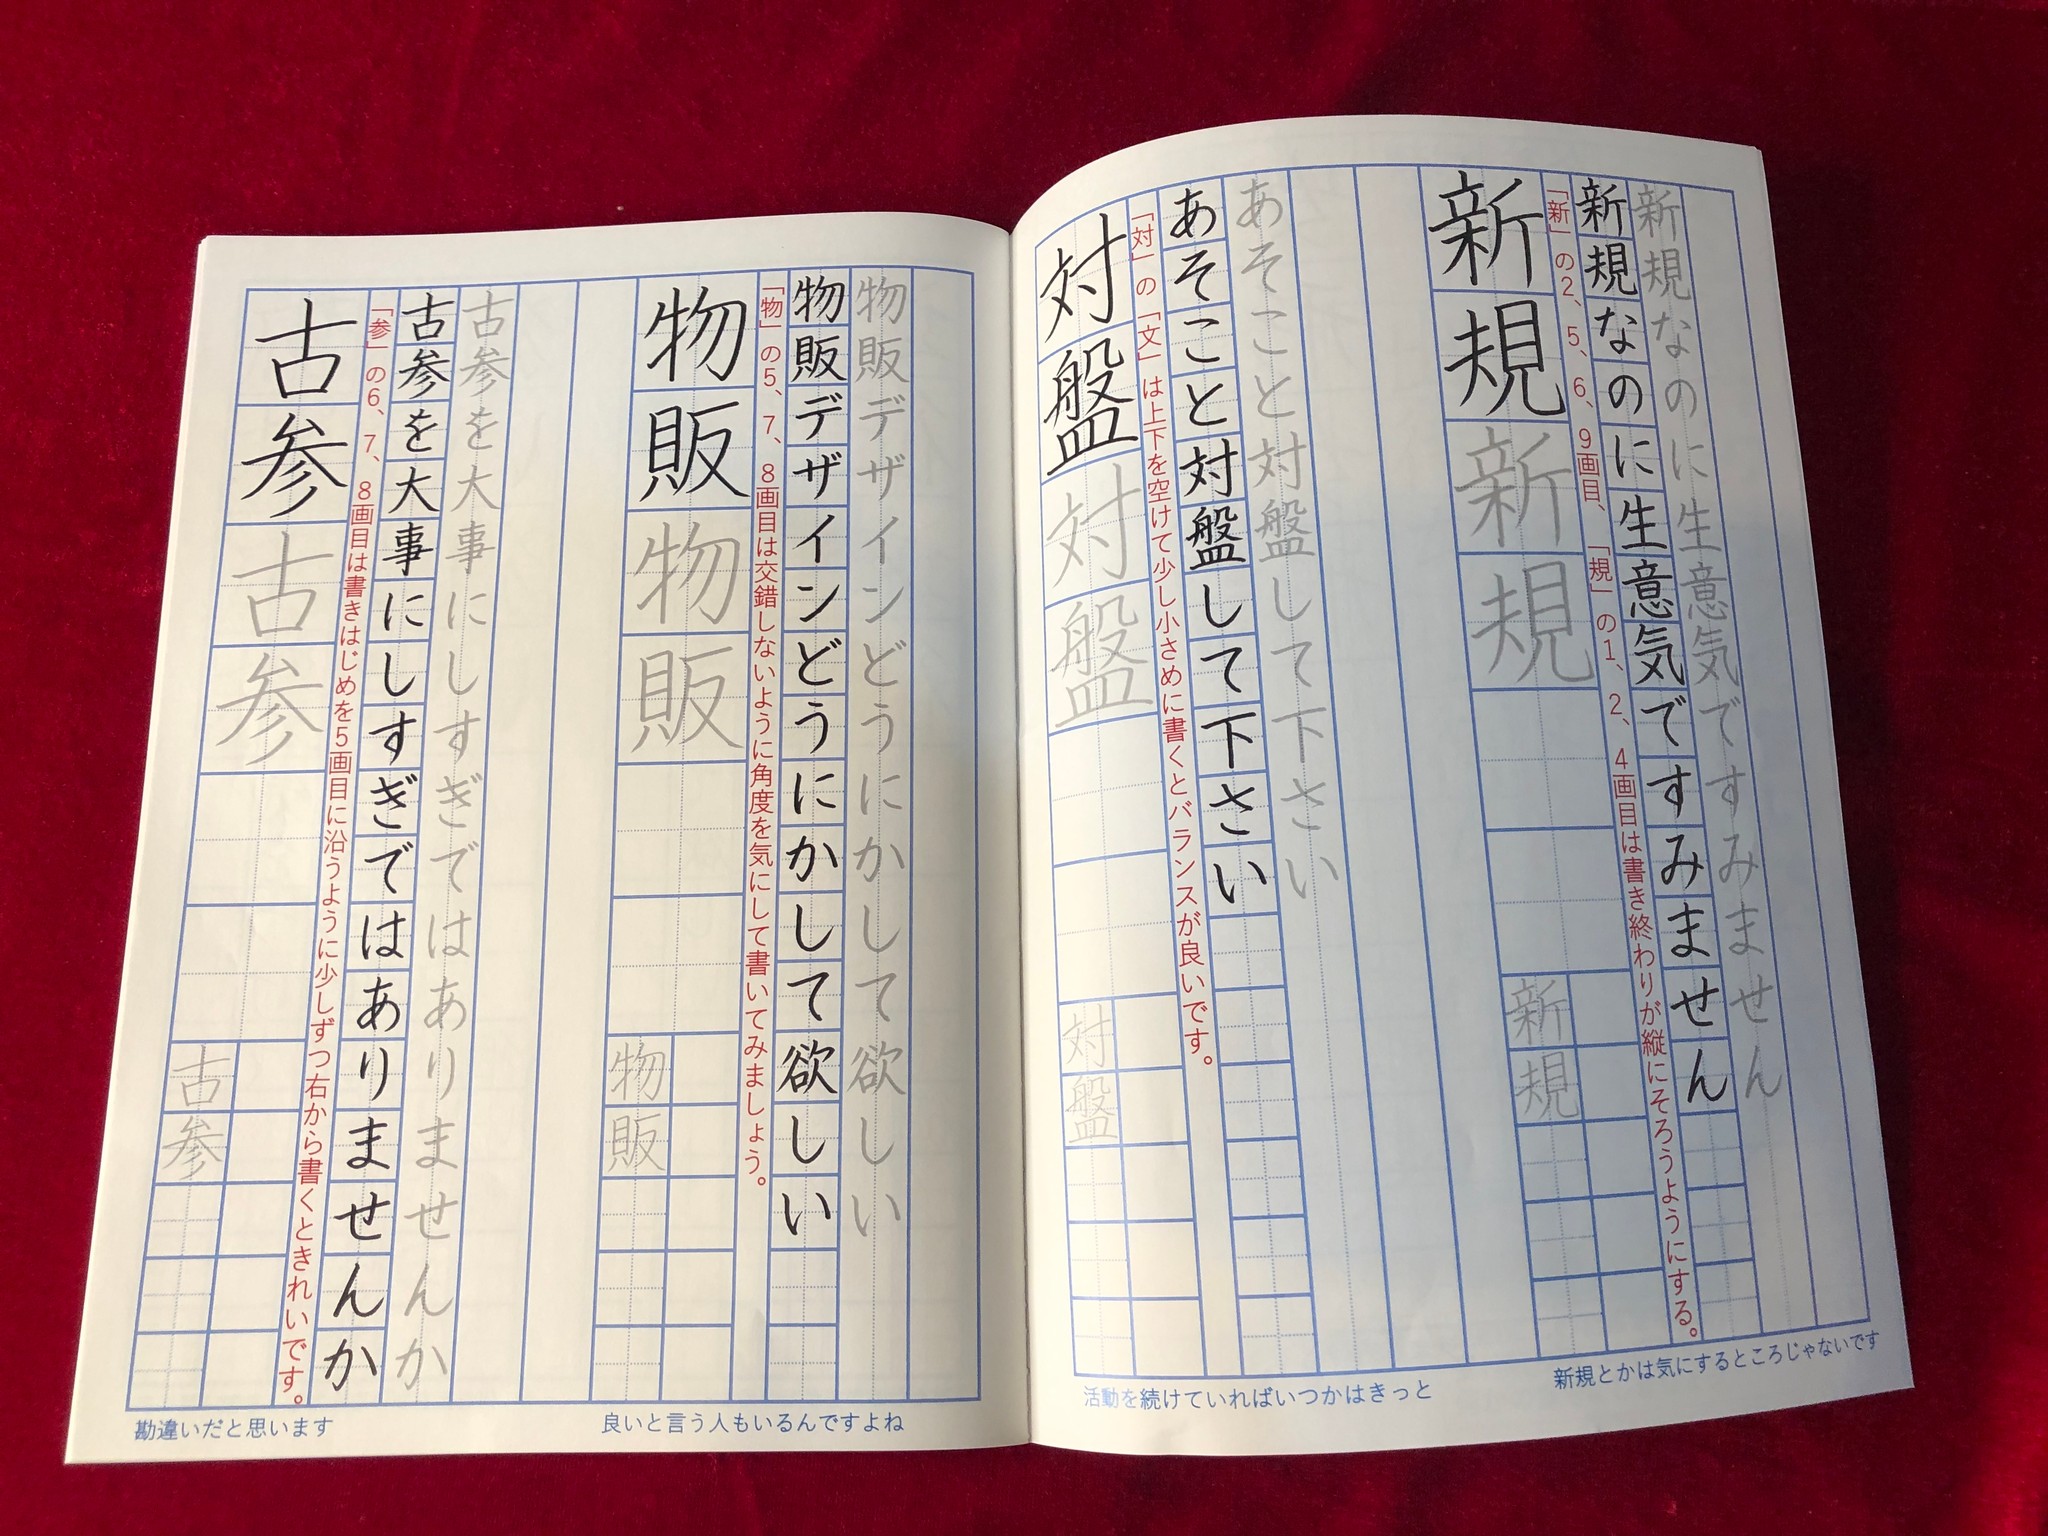 新規新規
新規
「新」の2、5、6、9画目、「規」の1、2、4画目は書き終わりが縦にそろうようにする。
新規なのに生意気ですみません
新規なのに生意気ですみません
新規とかは気にするところじゃないです
対盤対盤
対盤
「対」の「文」は上下を空けて少し小さめに書くとバランスが良いです。
あそこと対盤して下さい
あそこと対盤して下さい
活動を続けていればいつかはきっと
物販物販
物販
「物」の5、7、8画目は交錯しないように角度を気にして書いてみましょう。
物販デザインどうにかして欲しい
物販デザインどうにかして欲しい
良いと言う人もいるんですよね
古参古参
古参
「参」の6、7、8画目は書きはじめを5画目に沿うように少しずつ右から書くときれいです。
古参を大事にしすぎではありませんか
古参を大事にしすぎではありませんか
勘違いだと思います